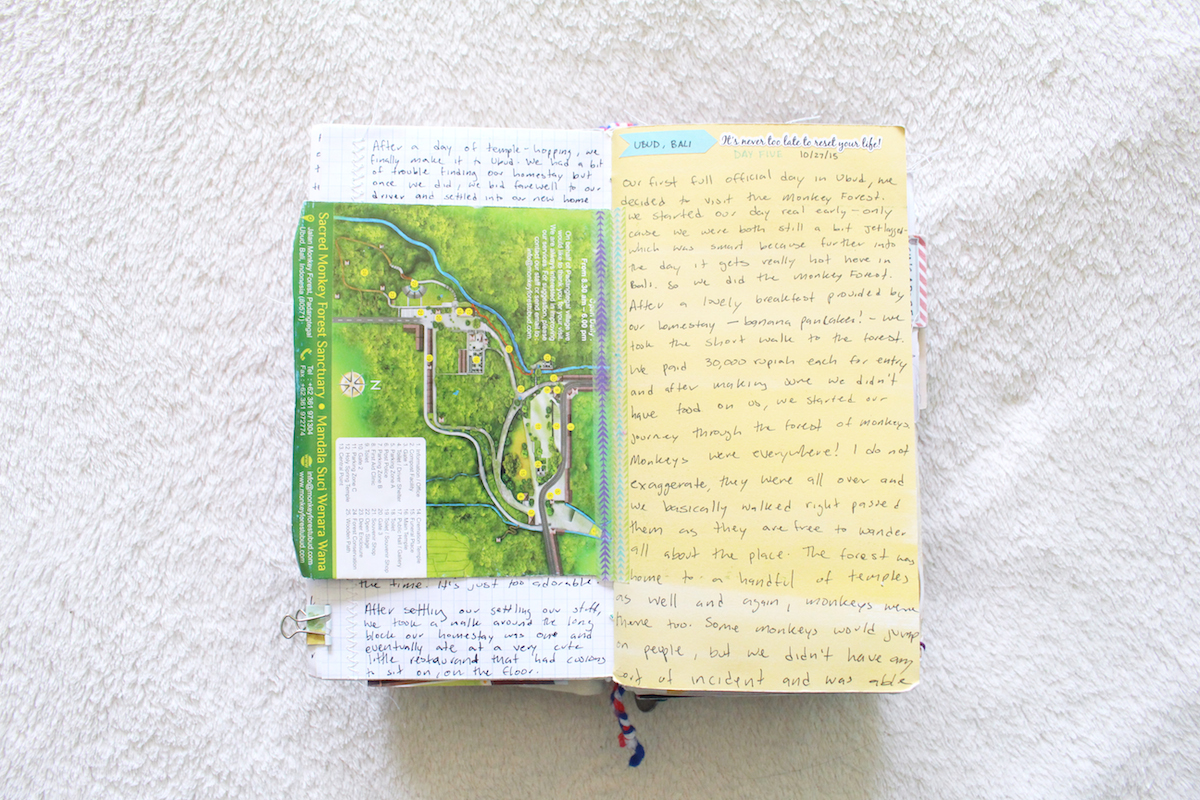 After a day of temple-hopping, we
finally make it to Ubud. We had a bit
of trouble finding our homestay but
once we did, we bid farewell to our
driver and settled into our new home
Sacred Monkey Forest Sanctuary • Mandala Suci Wenara Wana
Jalan Monkey Forest, Padangtegal
Ubud, Bali, Indonesia (80571)
Tel : +62 361 971304
Fax : +62 361 972774
info@monkeyforestubud.com
www.monkeyforestubud.com
From 8.30 am - 6.00 pm
N
the time. It's just too adorable.
After settling our settling our stuff,
we took a walk around the long
block our homestay was one and
eventually ate at a very cute
little restaurand that had cusions
to sit on, on the floor.
UBUD, BALI
It's never too late to reset your life!
DAY FIVE 10/27/15
Our first full official day in Ubud, we
decided to visit the Monkey Forest.
We started our day real early - only
cause we were both still a bit jetlagged -
which was smart because further into
the day it gets really hot here in
Bali. So we did the Monkey Forest.
After a lovely breakfast provided by
our homestay - banana pancakes! - we
took the short walk to the forest.
We paid 30,000 rupiah each for entry
and after making sure we didn't
have food on us, we started our
journey through the forest of monkeys.
Monkeys were everywhere! I do not
exaggerate, they were all over and
we basically walked right passed
them as they are free to wander
all about the place. The forest was
home to a handful of temples
as well and again, monkeys were
there too. Some monkeys would jump
on people, but we didn't have any
sort of incident and was able